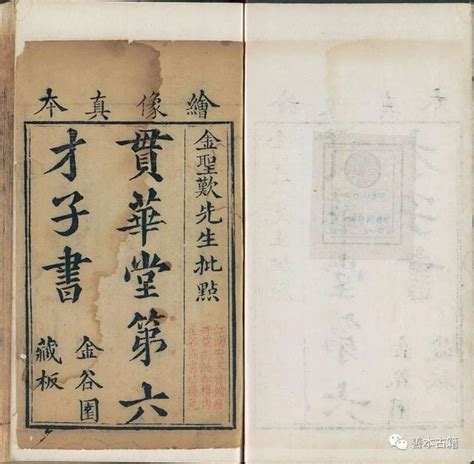 繪像真本
金聖歎先生批點
貫華堂第六
才子書
金谷園
藏板
善本古籍